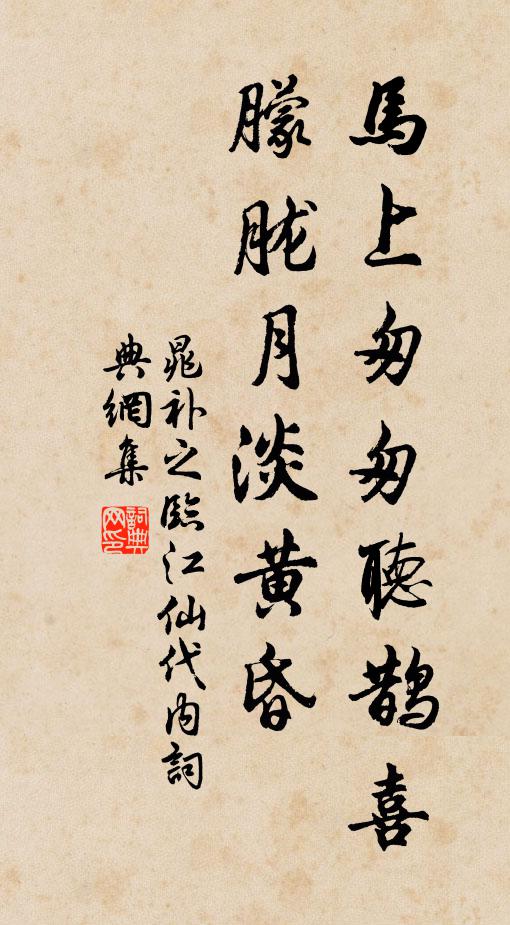 馬上匆匆聽鵲喜
朦朧月淡黄昏
晁補之臨江仙代内詞
典網集
詞典網印